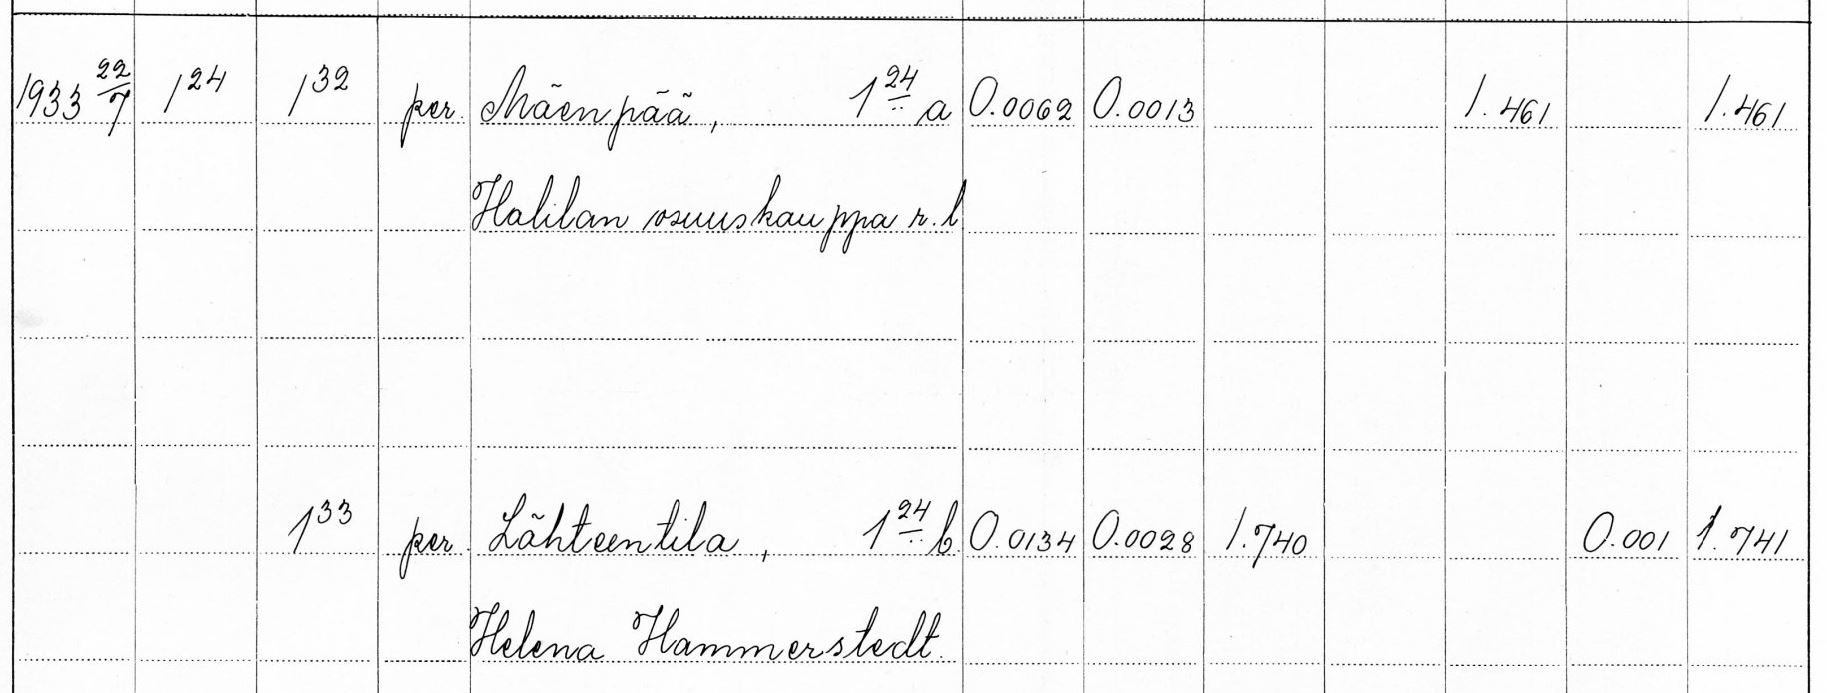 1933 22/7 1²⁴ 1³² per. Mäenpää, 1²⁴ a 0.0062 0.0013 1.461 1.461
Halilan osuuskauppa r.l
1³³ per. Lähteentila, 1²⁴ b 0.0134 0.0028 1.740 0.001 1.741
Helena Hammerstedt.